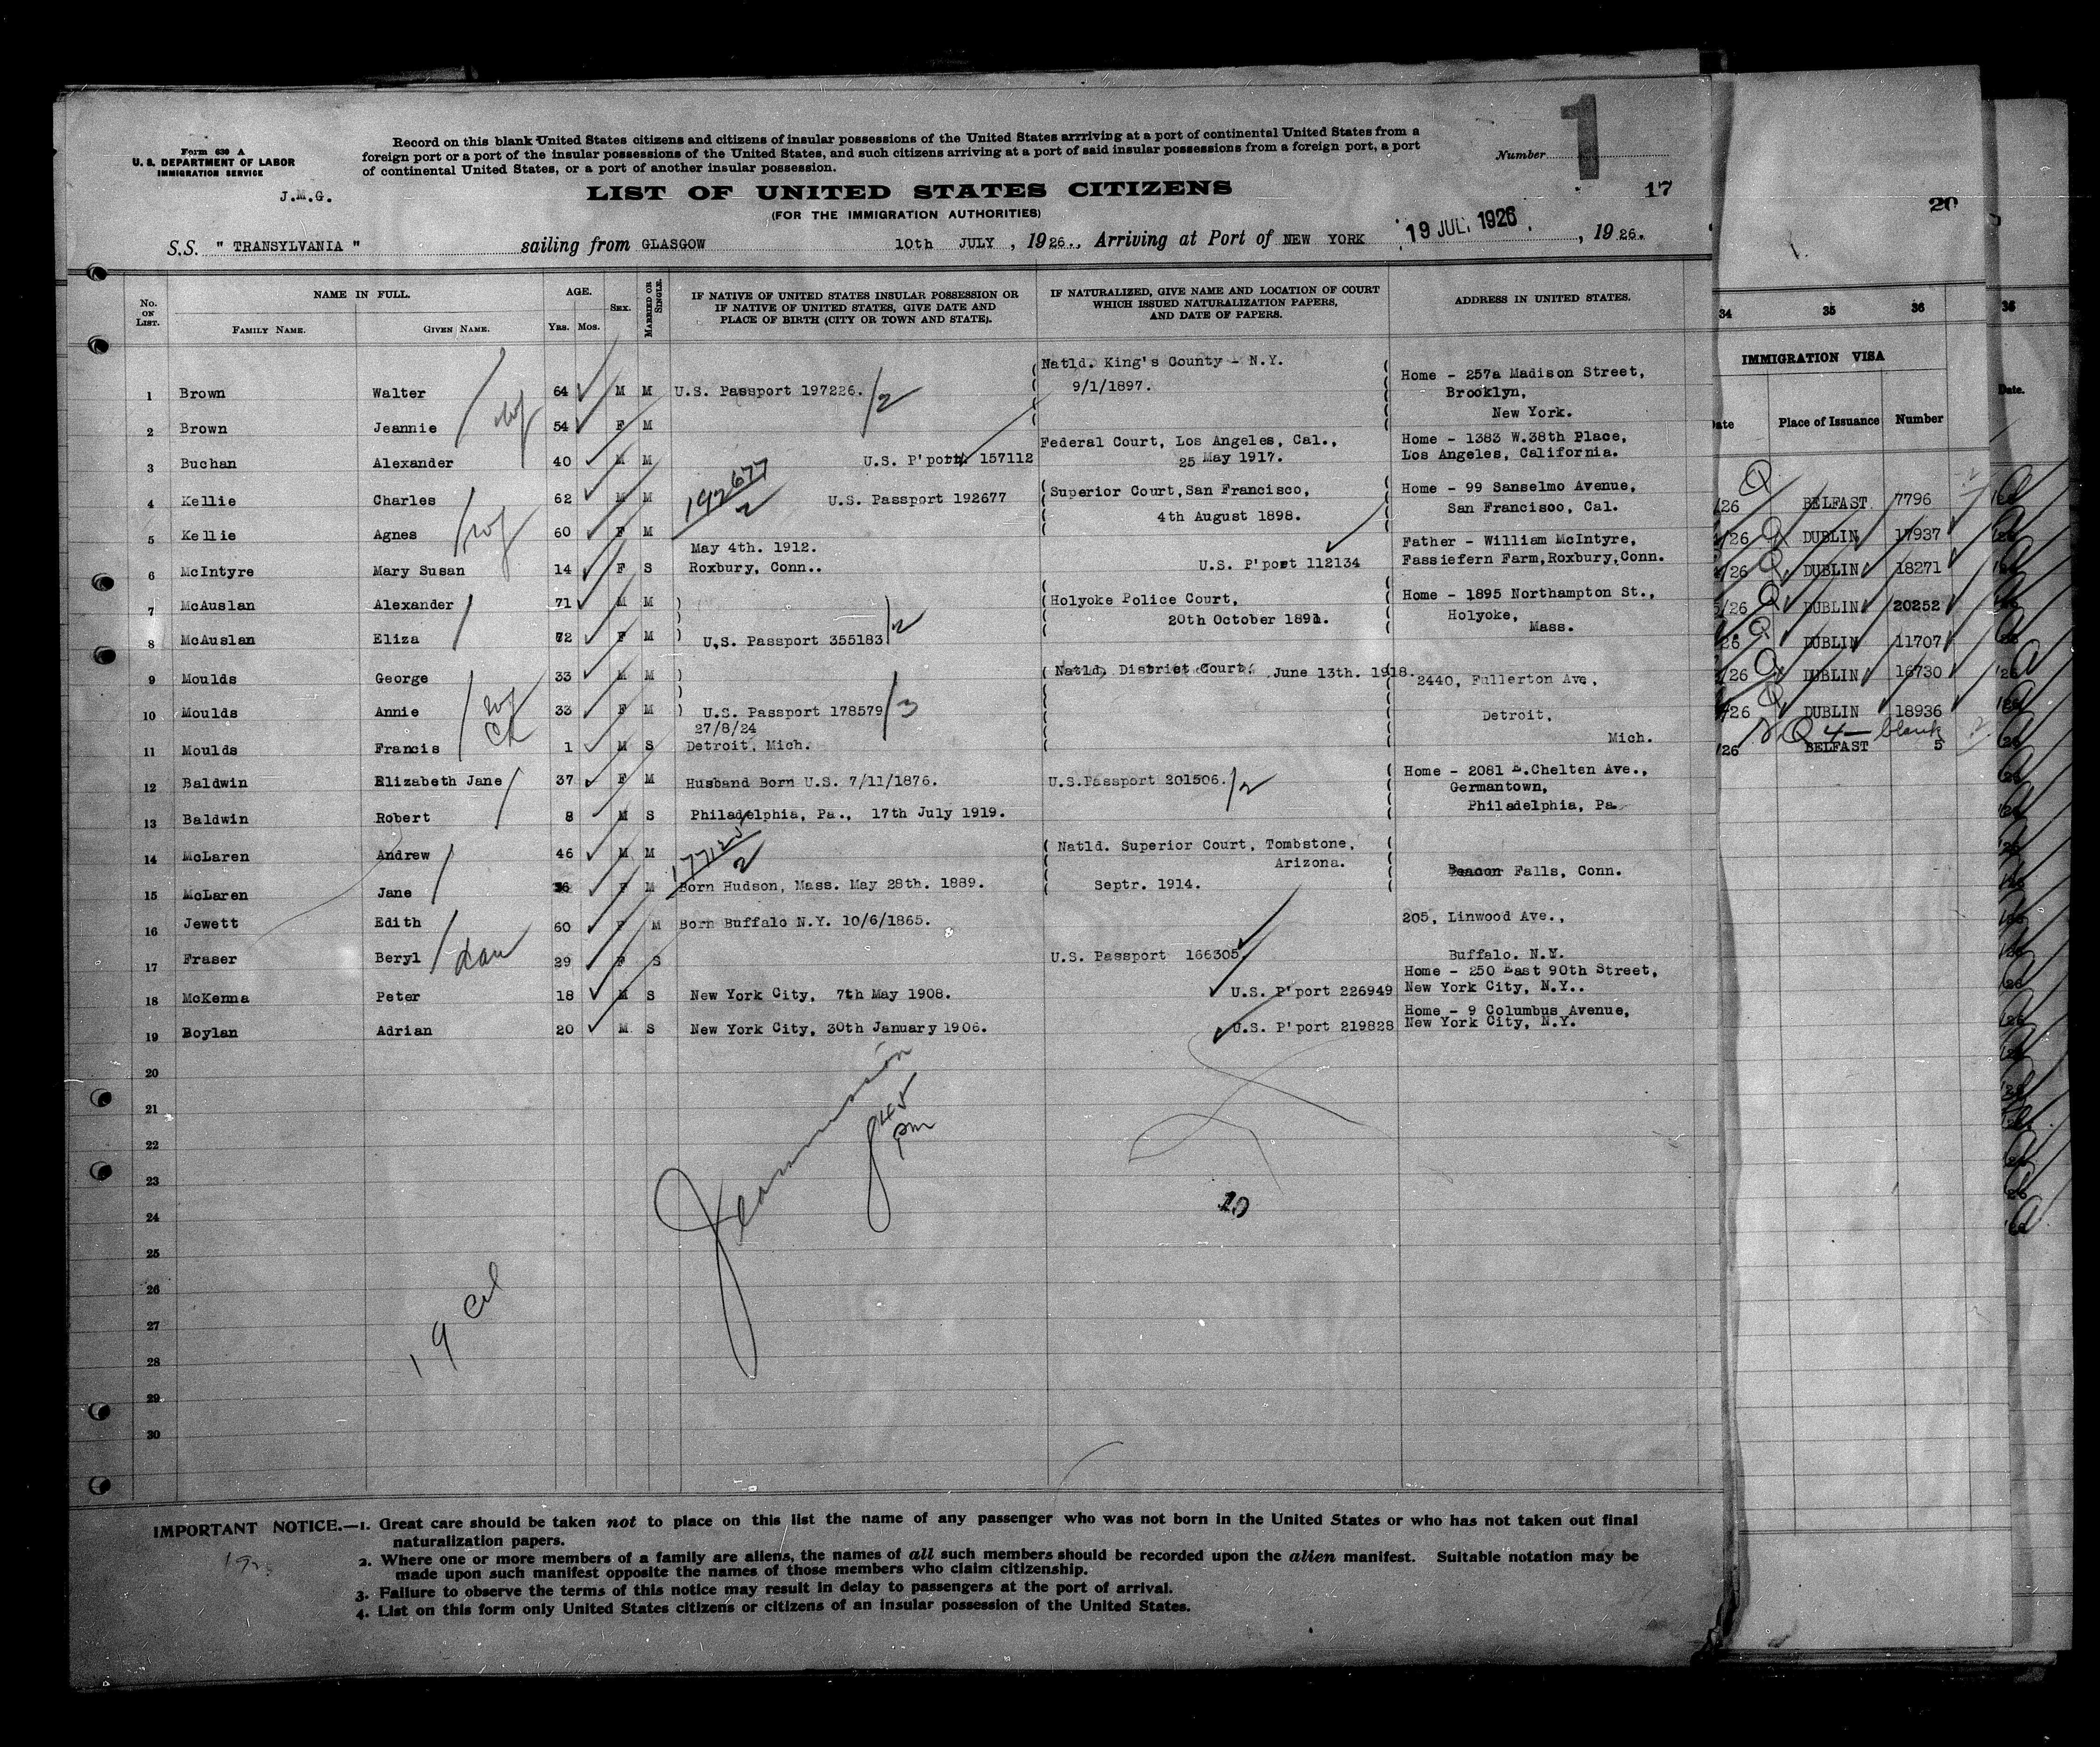 Form 630 A
U. S. DEPARTMENT OF LABOR
IMMIGRATION SERVICE
J.M.G.
Record on this blank United States citizens and citizens of insular possessions of the United States arrriving at a port of continental United States from a
foreign port or a port of the insular possessions of the United States, and such citizens arriving at a port of said insular possessions from a foreign port, a port
of continental United States, or a port of another insular possession.
Number
1
17
LIST OF UNITED STATES CITIZENS
(FOR THE IMMIGRATION AUTHORITIES)
S.S. " TRANSYLVANIA " sailing from GLASGOW 10th JULY , 1926., Arriving at Port of NEW YORK 19 JUL 1926 , 1926.
No. ON LIST.
NAME IN FULL.
FAMILY NAME. GIVEN NAME.
AGE.
Yrs. Mos.
SEX.
MARRIED OR SINGLE.
IF NATIVE OF UNITED STATES INSULAR POSSESSION OR
IF NATIVE OF UNITED STATES, GIVE DATE AND
PLACE OF BIRTH (CITY OR TOWN AND STATE).
IF NATURALIZED, GIVE NAME AND LOCATION OF COURT
WHICH ISSUED NATURALIZATION PAPERS,
AND DATE OF PAPERS.
ADDRESS IN UNITED STATES.
Natld. King's County - N.Y.
1 Brown Walter 64 M M U.S. Passport 197226. /2 9/1/1897. Home - 257a Madison Street,
Brooklyn,
New York.
2 Brown Jeannie 54 F M
3 Buchan Alexander 40 M M U.S. P'port 157112 Federal Court, Los Angeles, Cal.,
25 May 1917. Home - 1383 W.38th Place,
Los Angeles, California.
192677
2
4 Kellie Charles 62 M M U.S. Passport 192677 Superior Court,San Francisco,
4th August 1898. Home - 99 Sanselmo Avenue,
San Francisco, Cal.
5 Kellie Agnes 60 F M
May 4th. 1912.
6 McIntyre Mary Susan 14 F S Roxbury, Conn.. U.S. P'port 112134 Father - William McIntyre,
Fassiefern Farm,Roxbury,Conn.
7 McAuslan Alexander 71 M M Holyoke Police Court,
20th October 1891. Home - 1895 Northampton St.,
Holyoke,
Mass.
8 McAuslan Eliza 72 F M U.S. Passport 355183 /2
9 Moulds George 33 M M Natld. District Court. June 13th. 1918. 2440, Fullerton Ave,
10 Moulds Annie 33 F M U.S. Passport 178579 /3 Detroit,
27/8/24
11 Moulds Francis 1 M S Detroit, Mich. Mich.
12 Baldwin Elizabeth Jane 37 F M Husband Born U.S. 7/11/1876. U.S.Passport 201506. /2 Home - 2081 E.Chelten Ave.,
Germantown,
Philadelphia, Pa.
13 Baldwin Robert 8 M S Philadelphia, Pa., 17th July 1919.
2
14 McLaren Andrew 46 M M Natld. Superior Court, Tombstone,
Arizona.
Septr. 1914. Beacon Falls, Conn.
15 McLaren Jane 36 F M Born Hudson, Mass. May 28th. 1889.
16 Jewett Edith 60 F M Born Buffalo N.Y. 10/6/1865. 205, Linwood Ave.,
17 Fraser Beryl 29 F S U.S. Passport 166305 Buffalo. N.Y.
18 McKenna Peter 18 M S New York City, 7th May 1908. U.S. P'port 226949 Home - 250 East 90th Street,
New York City, N.Y..
19 Boylan Adrian 20 M S New York City, 30th January 1906. U.S. P'port 219828 Home - 9 Columbus Avenue,
New York City, N.Y.
20
21
22
23
24
25
26
27
28
29
30
8 45
pm
19
IMPORTANT NOTICE.—1. Great care should be taken not to place on this list the name of any passenger who was not born in the United States or who has not taken out final
naturalization papers.
2. Where one or more members of a family are aliens, the names of all such members should be recorded upon the alien manifest. Suitable notation may be
made upon such manifest opposite the names of those members who claim citizenship.
3. Failure to observe the terms of this notice may result in delay to passengers at the port of arrival.
4. List on this form only United States citizens or citizens of an insular possession of the United States.
20
34 35 36
IMMIGRATION VISA
Place of Issuance Number
/26 BELFAST 7796
/26 DUBLIN 17937
/26 DUBLIN 18271
/26 DUBLIN 20252
26 DUBLIN 11707
/26 DUBLIN 16730
/26 DUBLIN 18936
4 — blank
/26 BELFAST 5
36
Date.